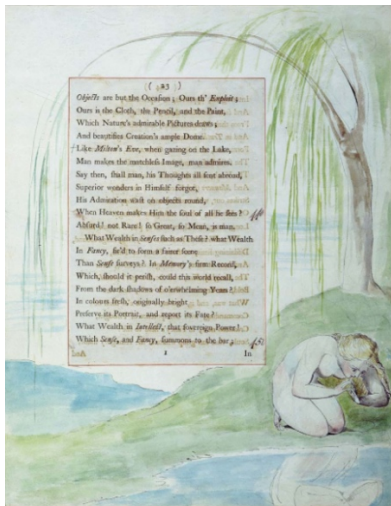 ( 23 )
Objects are but the Occasion; Ours th' Exploit;
Ours is the Cloth, the Pencil, and the Paint,
Which Nature's admirable Picture draws;
And beautifies Creation's ample Dome.
Like Milton's Eve, when gazing on the Lake,
Man makes the matchless Image, man admires.
Say then, shall man, his Thoughts all sent abroad,
Superior wonders in Himself forgot,
His Admiration waste on objects round,
When Heaven makes Him the soul of all he sees?
Absurd! not Rare! so Great, so Mean, is man.
What Wealth in Senses such as These? what Wealth
In Fancy, fir'd to form a fairer scene
Than Sense surveys? In Memory's firm Record,
Which, should it perish, could this world recall,
From the dark shadows of o'erwhelming Years!
In colours fresh, originally bright
Preserve its Portrait, and report its Fate?
What Wealth in Intellect, that sovereign Power!
Which Sense, and Fancy, summons to the bar;
In